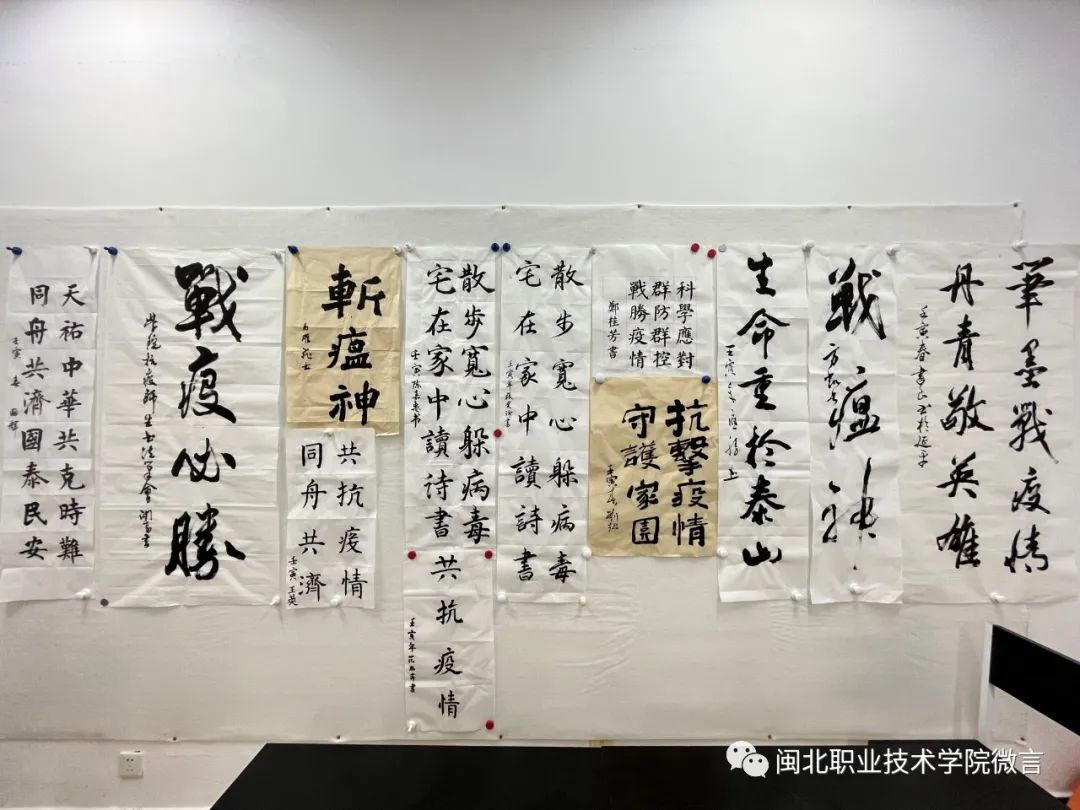 筆墨戰疫情
丹青敬英雄
壬寅春
戰瘟神
生命重於泰山
壬寅
科學應對
群防群控
戰勝疫情
鄭桂芳書
抗擊疫情
守護家園
壬寅春
散步寬心躲病毒
宅在家中讀詩書
壬寅年
散步寬心躲病毒
宅在家中讀诗書
壬寅
共抗疫情
壬寅年
斬瘟神
共抗疫情
同舟共濟
壬寅 玉英
戰疫必勝
天祐中華共克時難
同舟共濟國泰民安
壬寅 春
闽北职业技术学院微言